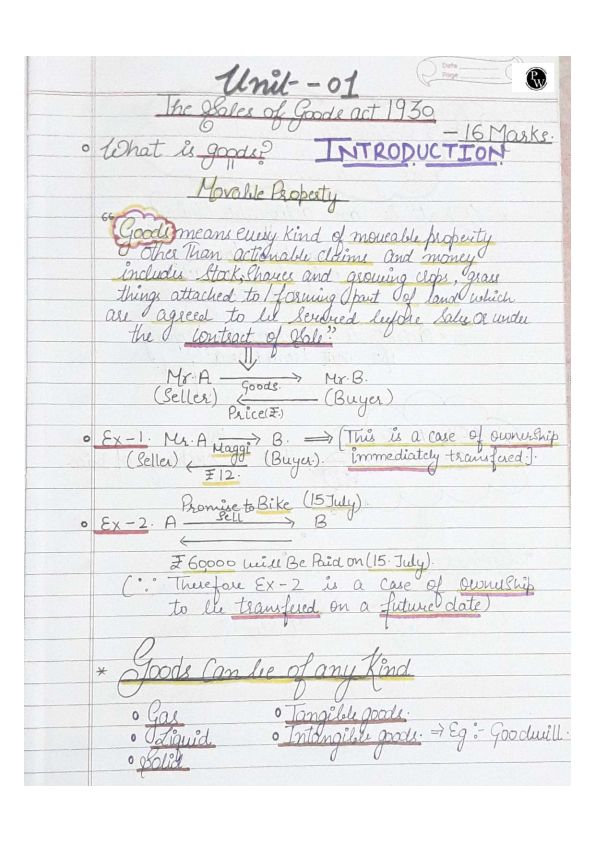 Date
Page
PW
Unit - 01
The Sales of Goods act 1930
- 16 Marks.
What is goods? INTRODUCTION
Movable Property
"Goods means every kind of moveable property
other than actionable claims and money
includes stock, shares and growing crops, grass
things attached to / forming part of land which
are agreed to be served before sale or under
the contract of Sale."
Mr. A Goods Mr. B.
(Seller) (Buyer)
Price(₹.)
Ex-1. Mr. A Maggi B. ⇒ [This is a case of ownership
(Seller) (Buyer). immediately transfered].
₹12.
Promise to Bike (15 July).
Ex-2. A Sell B
₹ 60,000 will Be Paid on (15. July).
(∵ Therefore Ex-2 is a case of ownership
to be transfered on a future date)
* Goods can be of any Kind
Gas Tangible goods.
Liquid Intangible goods. ⇒ Eg :- Goodwill.
Solid